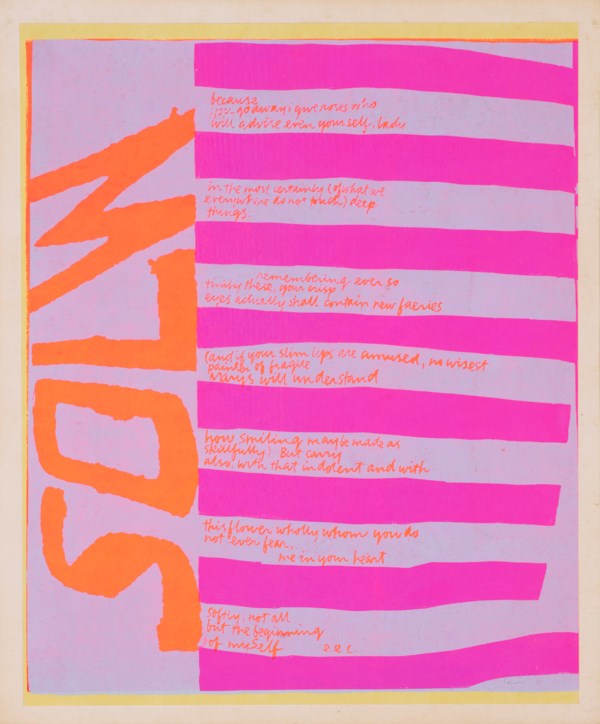 SOLW
because
you go away i give roses who
will advise even yourself, lady
in the most certainly (of what we
everywhere do not touch) deep
things.
remembering ever so
tinily these, your crisp
eyes actually shall contain new faeries
(and if your slim lips are amused, no wisest
painter of fragile
Marys will understand
how smiling may be made as
skillfully) But carry
also, with that indolent and with
this flower wholly whom you do
not ever fear,
me in your heart
softly; not all
but the beginning
of mySelf e.e.c.